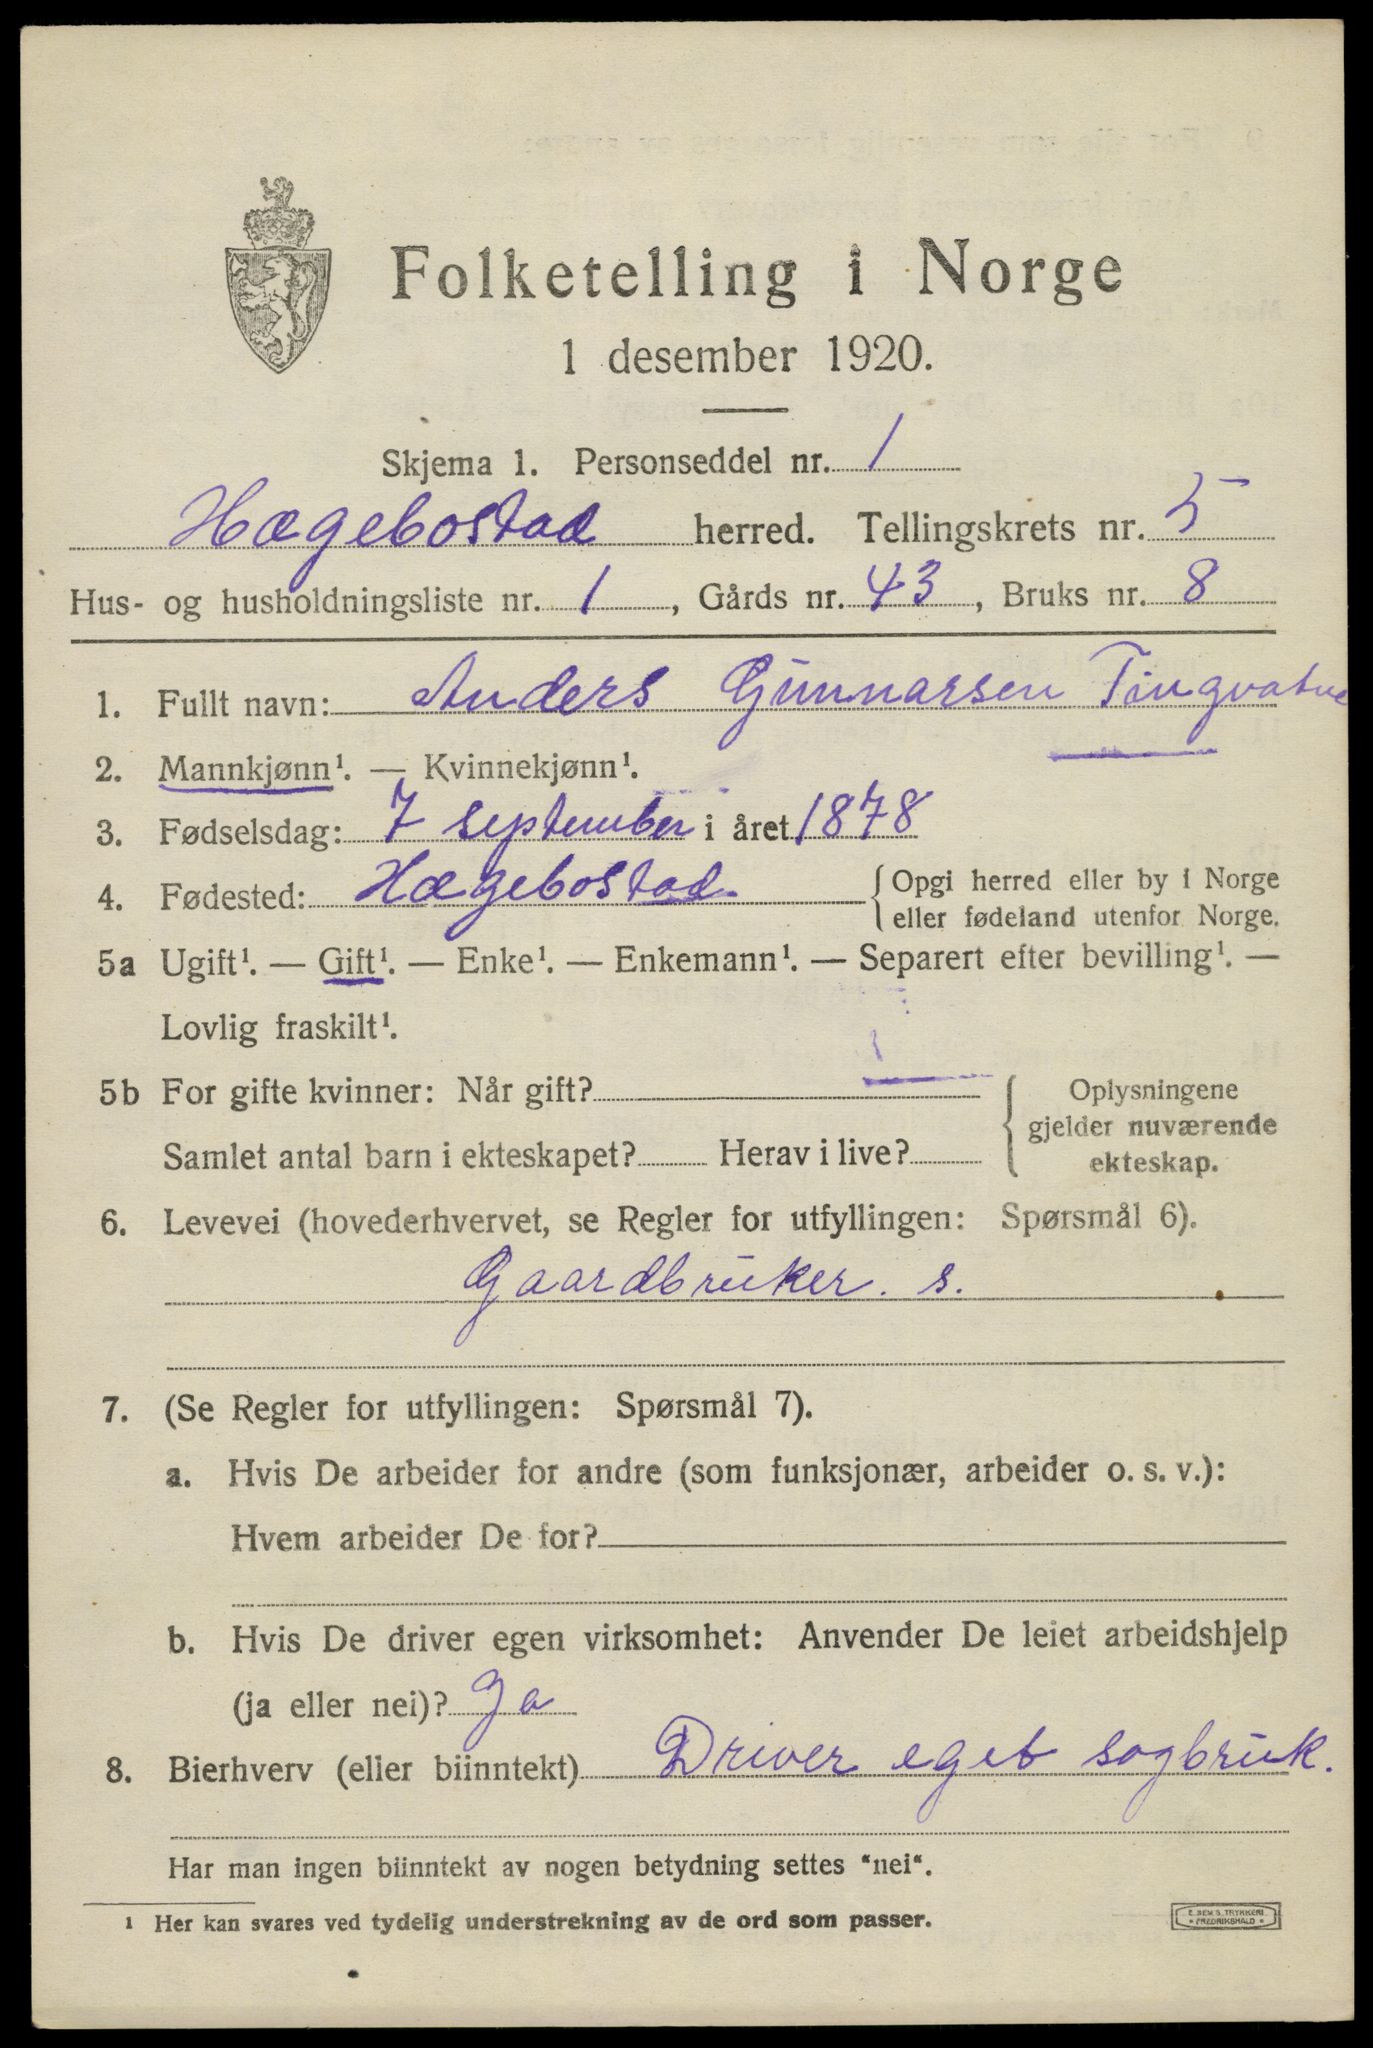 Folketelling i Norge
1 desember 1920.
Skjema 1. Personseddel nr. 1
Hægebostad herred. Tellingskrets nr. 5
Hus- og husholdningsliste nr. 1, Gårds nr. 43, Bruks nr. 8
1. Fullt navn: Anders Gunnarsen Tingvatne
2. Mannkjønn¹. — Kvinnekjønn¹.
3. Fødselsdag: 7 september i året 1878
4. Fødested: Hægebostad. {Opgi herred eller by i Norge
eller fødeland utenfor Norge.
5a Ugift¹. — Gift¹. — Enke¹. — Enkemann¹. — Separert efter bevilling¹. —
Lovlig fraskilt¹.
5b For gifte kvinner: Når gift? {Oplysningene
gjelder nuværende
Samlet antal barn i ekteskapet? Herav i live? ekteskap.
6. Levevei (hovederhvervet, se Regler for utfyllingen: Spørsmål 6).
Gaardbruker. s.
7. (Se Regler for utfyllingen: Spørsmål 7).
a. Hvis De arbeider for andre (som funksjonær, arbeider o. s. v.):
Hvem arbeider De for?
b. Hvis De driver egen virksomhet: Anvender De leiet arbeidshjelp
(ja eller nei)? Ja
8. Bierhverv (eller biinntekt) Driver eget sagbruk.
Har man ingen biinntekt av nogen betydning settes "nei".
¹ Her kan svares ved tydelig understrekning av de ord som passer.
E. SEM S. TRYKKERI
• FREDRIKSHALD •